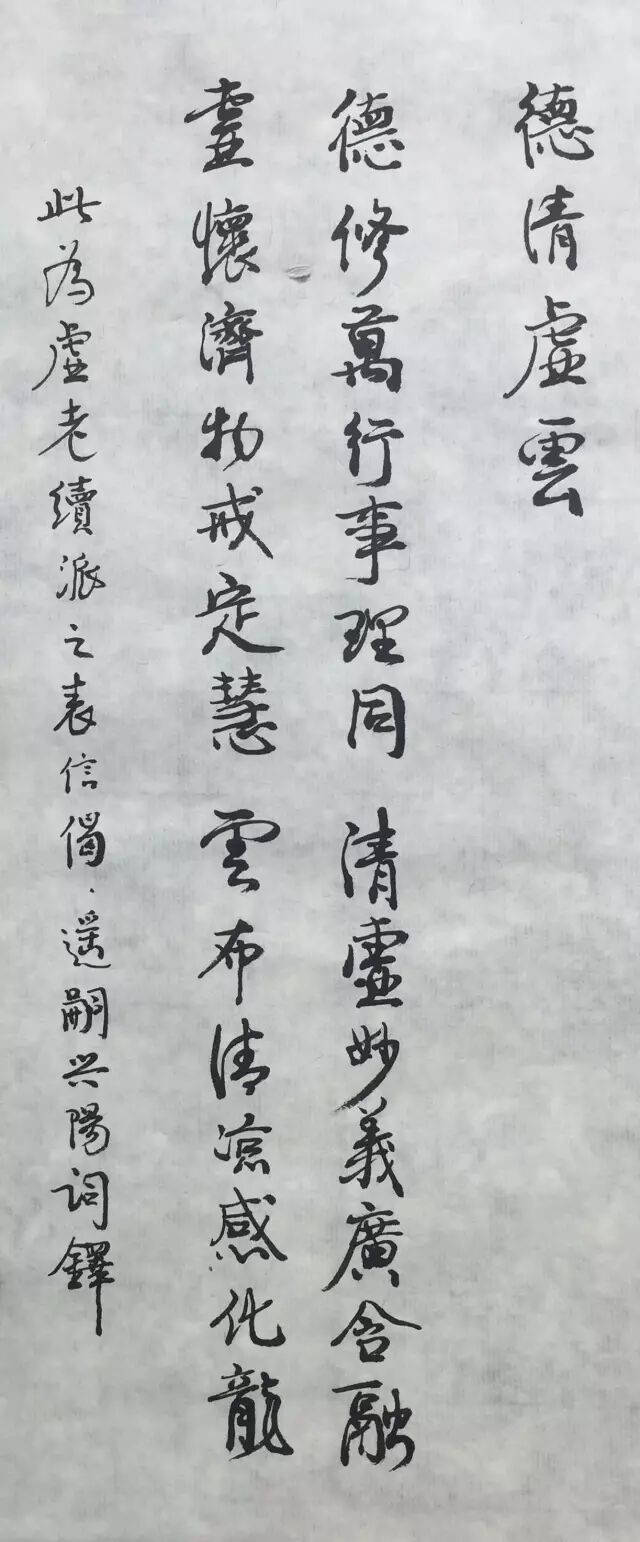 德清虛雲
德修萬行事理同 清虛妙義廣含融
虛懷濟物戒定慧 雲布清涼感化龍
此為虛老續派之表信偈、遥嗣兴陽詞鐸